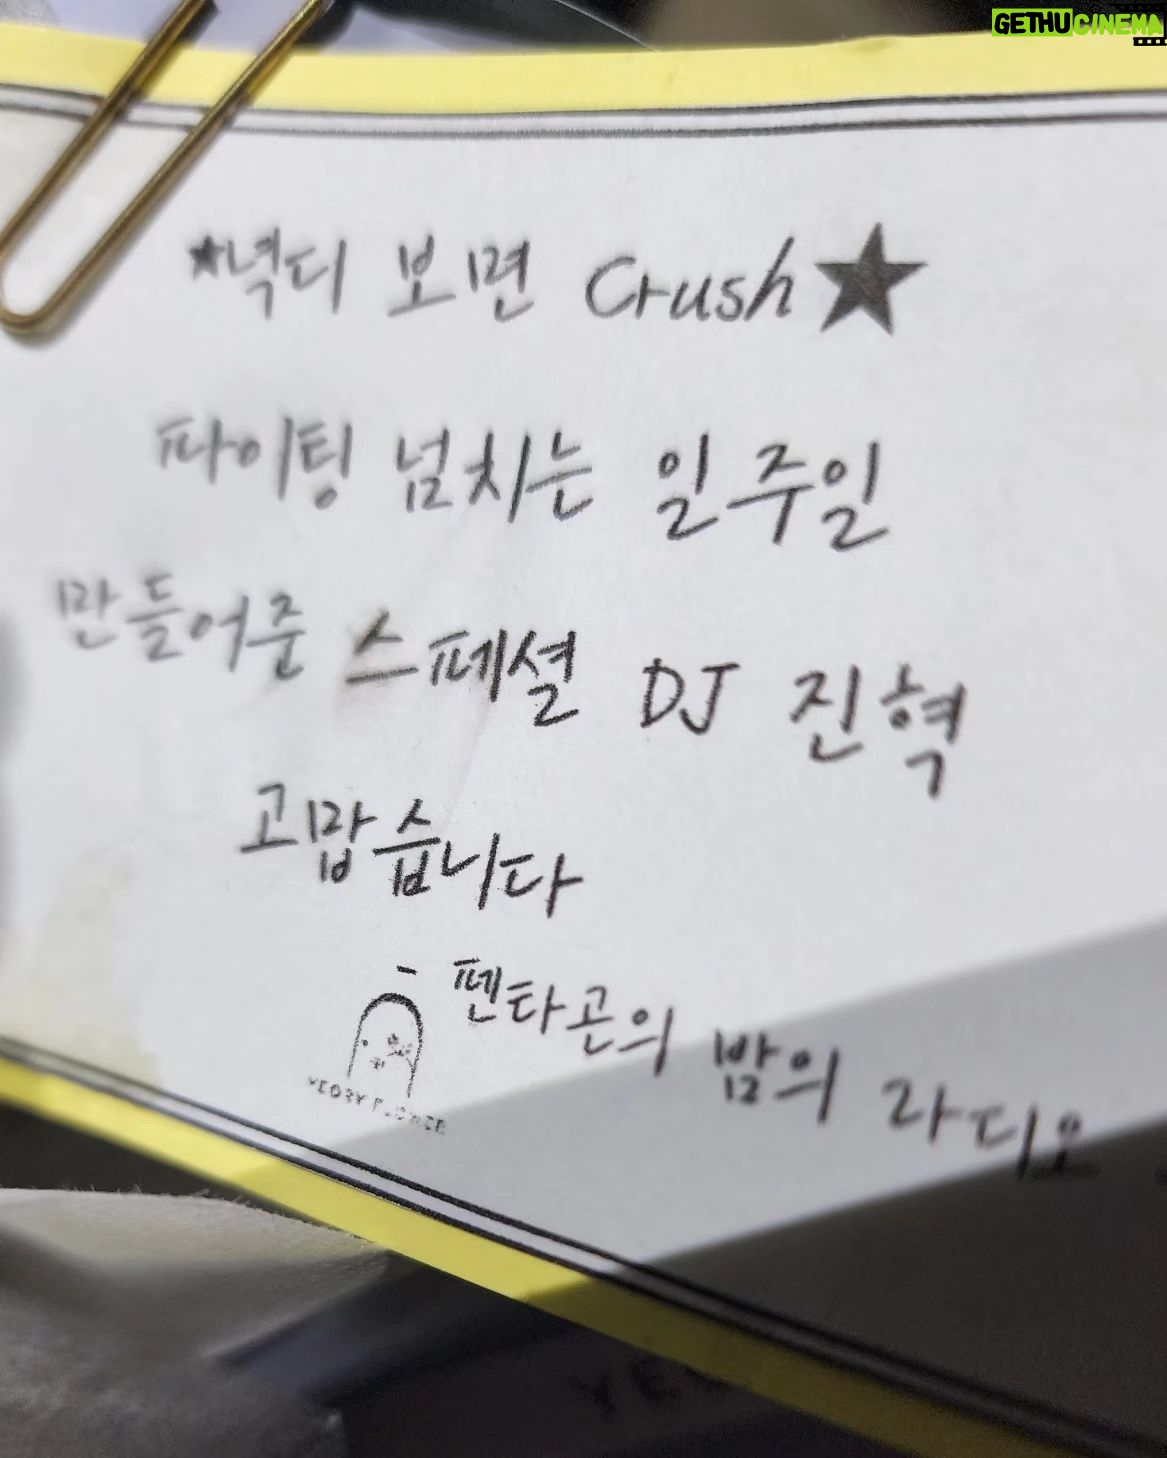 GETHUCINEMA
★녁디 보면 Crush★
파이팅 넘치는 일주일
만들어준 스페셜 DJ 진혁
고맙습니다
- 펜타곤의 밤의 라디오